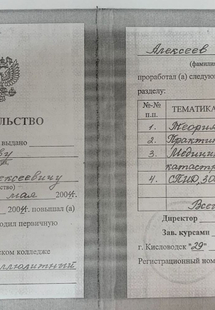 ЛЬСТВО
выдано
ву
ексеевичу
ство)
мая 2004
2004 повышал (а)
одил первичную
ском колледже
Алексеев
(фамили
проработал (а) следую
разделу:
№№ п.п. ТЕМАТИКА
1. Теория
2. Практи
3. Медицин
катастр
4. СПИД,
Всег
Директор
Зав. курсами
г. Кисловодск "29"
Регистрационный номер